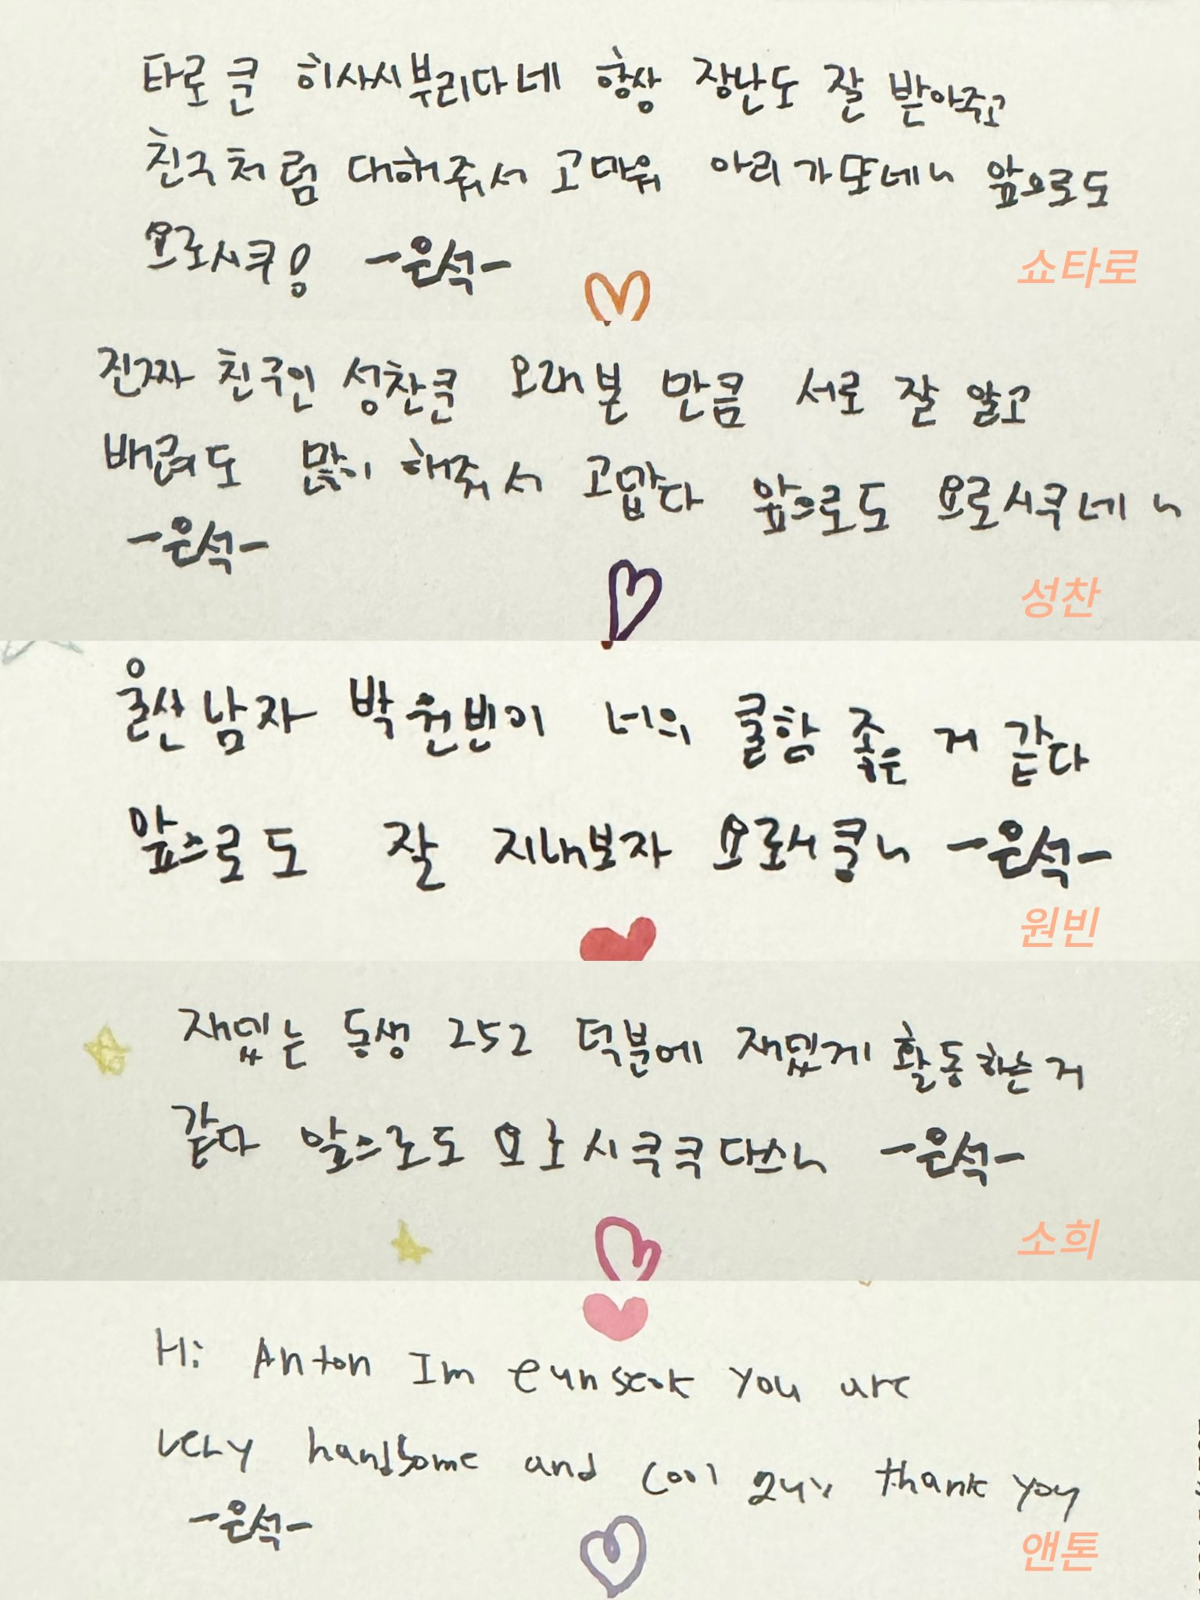 타로 쿤 히사시부리다네 항상 장난도 잘 받아주고
친구처럼 대해줘서 고마워 아리가또네ㅆ 앞으로도
요로시쿠! -은석-
쇼타로
진짜 친구인 성찬쿤 오래본 만큼 서로 잘 알고
배려도 많이 해줘서 고맙다 앞으로도 요로시쿠네ㅆ
-은석-
성찬
울산남자 박원빈이 너의 쿨함 좋은 거 같다
앞으로도 잘 지내보자 요로시쿵ㅆ -은석-
원빈
재밌는 동생 252 덕분에 재밌게 활동하는거
같다 앞으로도 요로시쿠쿠다스ㅆ -은석-
소희
Hi Anton Im eunseok you are
very handsome and cool guy thank you
-은석-
앤톤